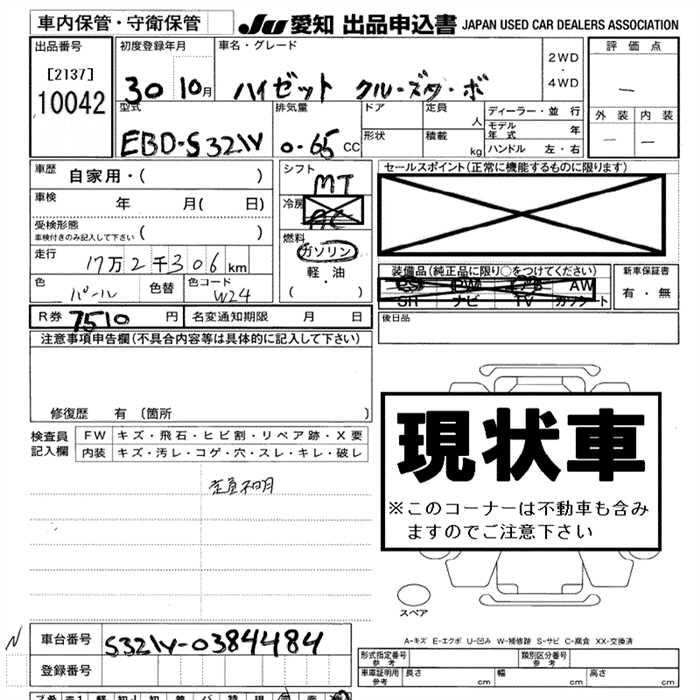 車内保管・守衛保管 JU 愛知 出品申込書 JAPAN USED CAR DEALERS ASSOCIATION
出品番号 初度登録年月 車名・グレード 評価点
[2137] 30 10月 ハイゼット クルーズタ・ボ 2WD・4WD
10042
型式 排気量 ドア 定員 人 ディーラー・並行 外装 内装
EBD-S321V 0.65 CC 形状 積載 kg モデル年式 年
ハンドル 左・右
車歴 自家用・( )
シフト MT
セールスポイント(正常に機能するものに限ります)
車検 年 月( 日)
冷房 AC
受検形態 ( )
車検付きのみ記入して下さい
燃料 ガソリン
軽・油
・( )
走行 17万2千306km
装備品(純正品に限り○をつけてください)
PS PW AW
SH ナビ TV カワシート
新車保証書
有・無
色 パール 色替 色コード W24
R券 7510 円 名変通知期限 月 日
後日品
注意事項申告欄(不具合内容等は具体的に記入して下さい)
修復歴 有 〔箇所 〕
検査員記入欄 FW キズ・飛石・ヒビ割・リペア跡・X要
内装 キズ・汚レ・コゲ・穴・スレ・キレ・破レ
走不明
現状車
※このコーナーは不動車も含み
ますのでご注意下さい
スペア
A-キズ E-エクボ U-凹み W-補修跡 S-サビ C-腐食 XX-交換済
N 車台番号 S321V-0384484
登録番号
形式指定番号 参考 類別区分番号 参考
車庫証明用 参考 長さ cm 幅 cm 高さ cm